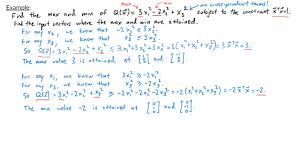 Example: no cross-product terms!
Find the max and min of Q(x⃗) = 3x₁² - 2x₂² + x₃² subject to the constraint x⃗ᵀx⃗ = 1.
Find the input vectors where the max and min are attained.
For any x₂, we know that -2x₂² ≤ 3x₂²
For any x₃, we know that x₃² ≤ 3x₃²
So Q(x⃗) = 3x₁² - 2x₂² + x₃² ≤ 3x₁² + 3x₂² + 3x₃² = 3(x₁² + x₂² + x₃²) = 3x⃗ᵀx⃗ = 3.
The max value 3 is attained at [1 0 0] and [-1 0 0]
For any x₁, we know that 3x₁² ≥ -2x₁²
For any x₃, we know that x₃² ≥ -2x₃²
So Q(x⃗) = 3x₁² - 2x₂² + x₃² ≥ -2x₁² - 2x₂² - 2x₃² = -2(x₁² + x₂² + x₃²) = -2x⃗ᵀx⃗ = -2.
The min value -2 is attained at [0 1 0] and [0 -1 0]